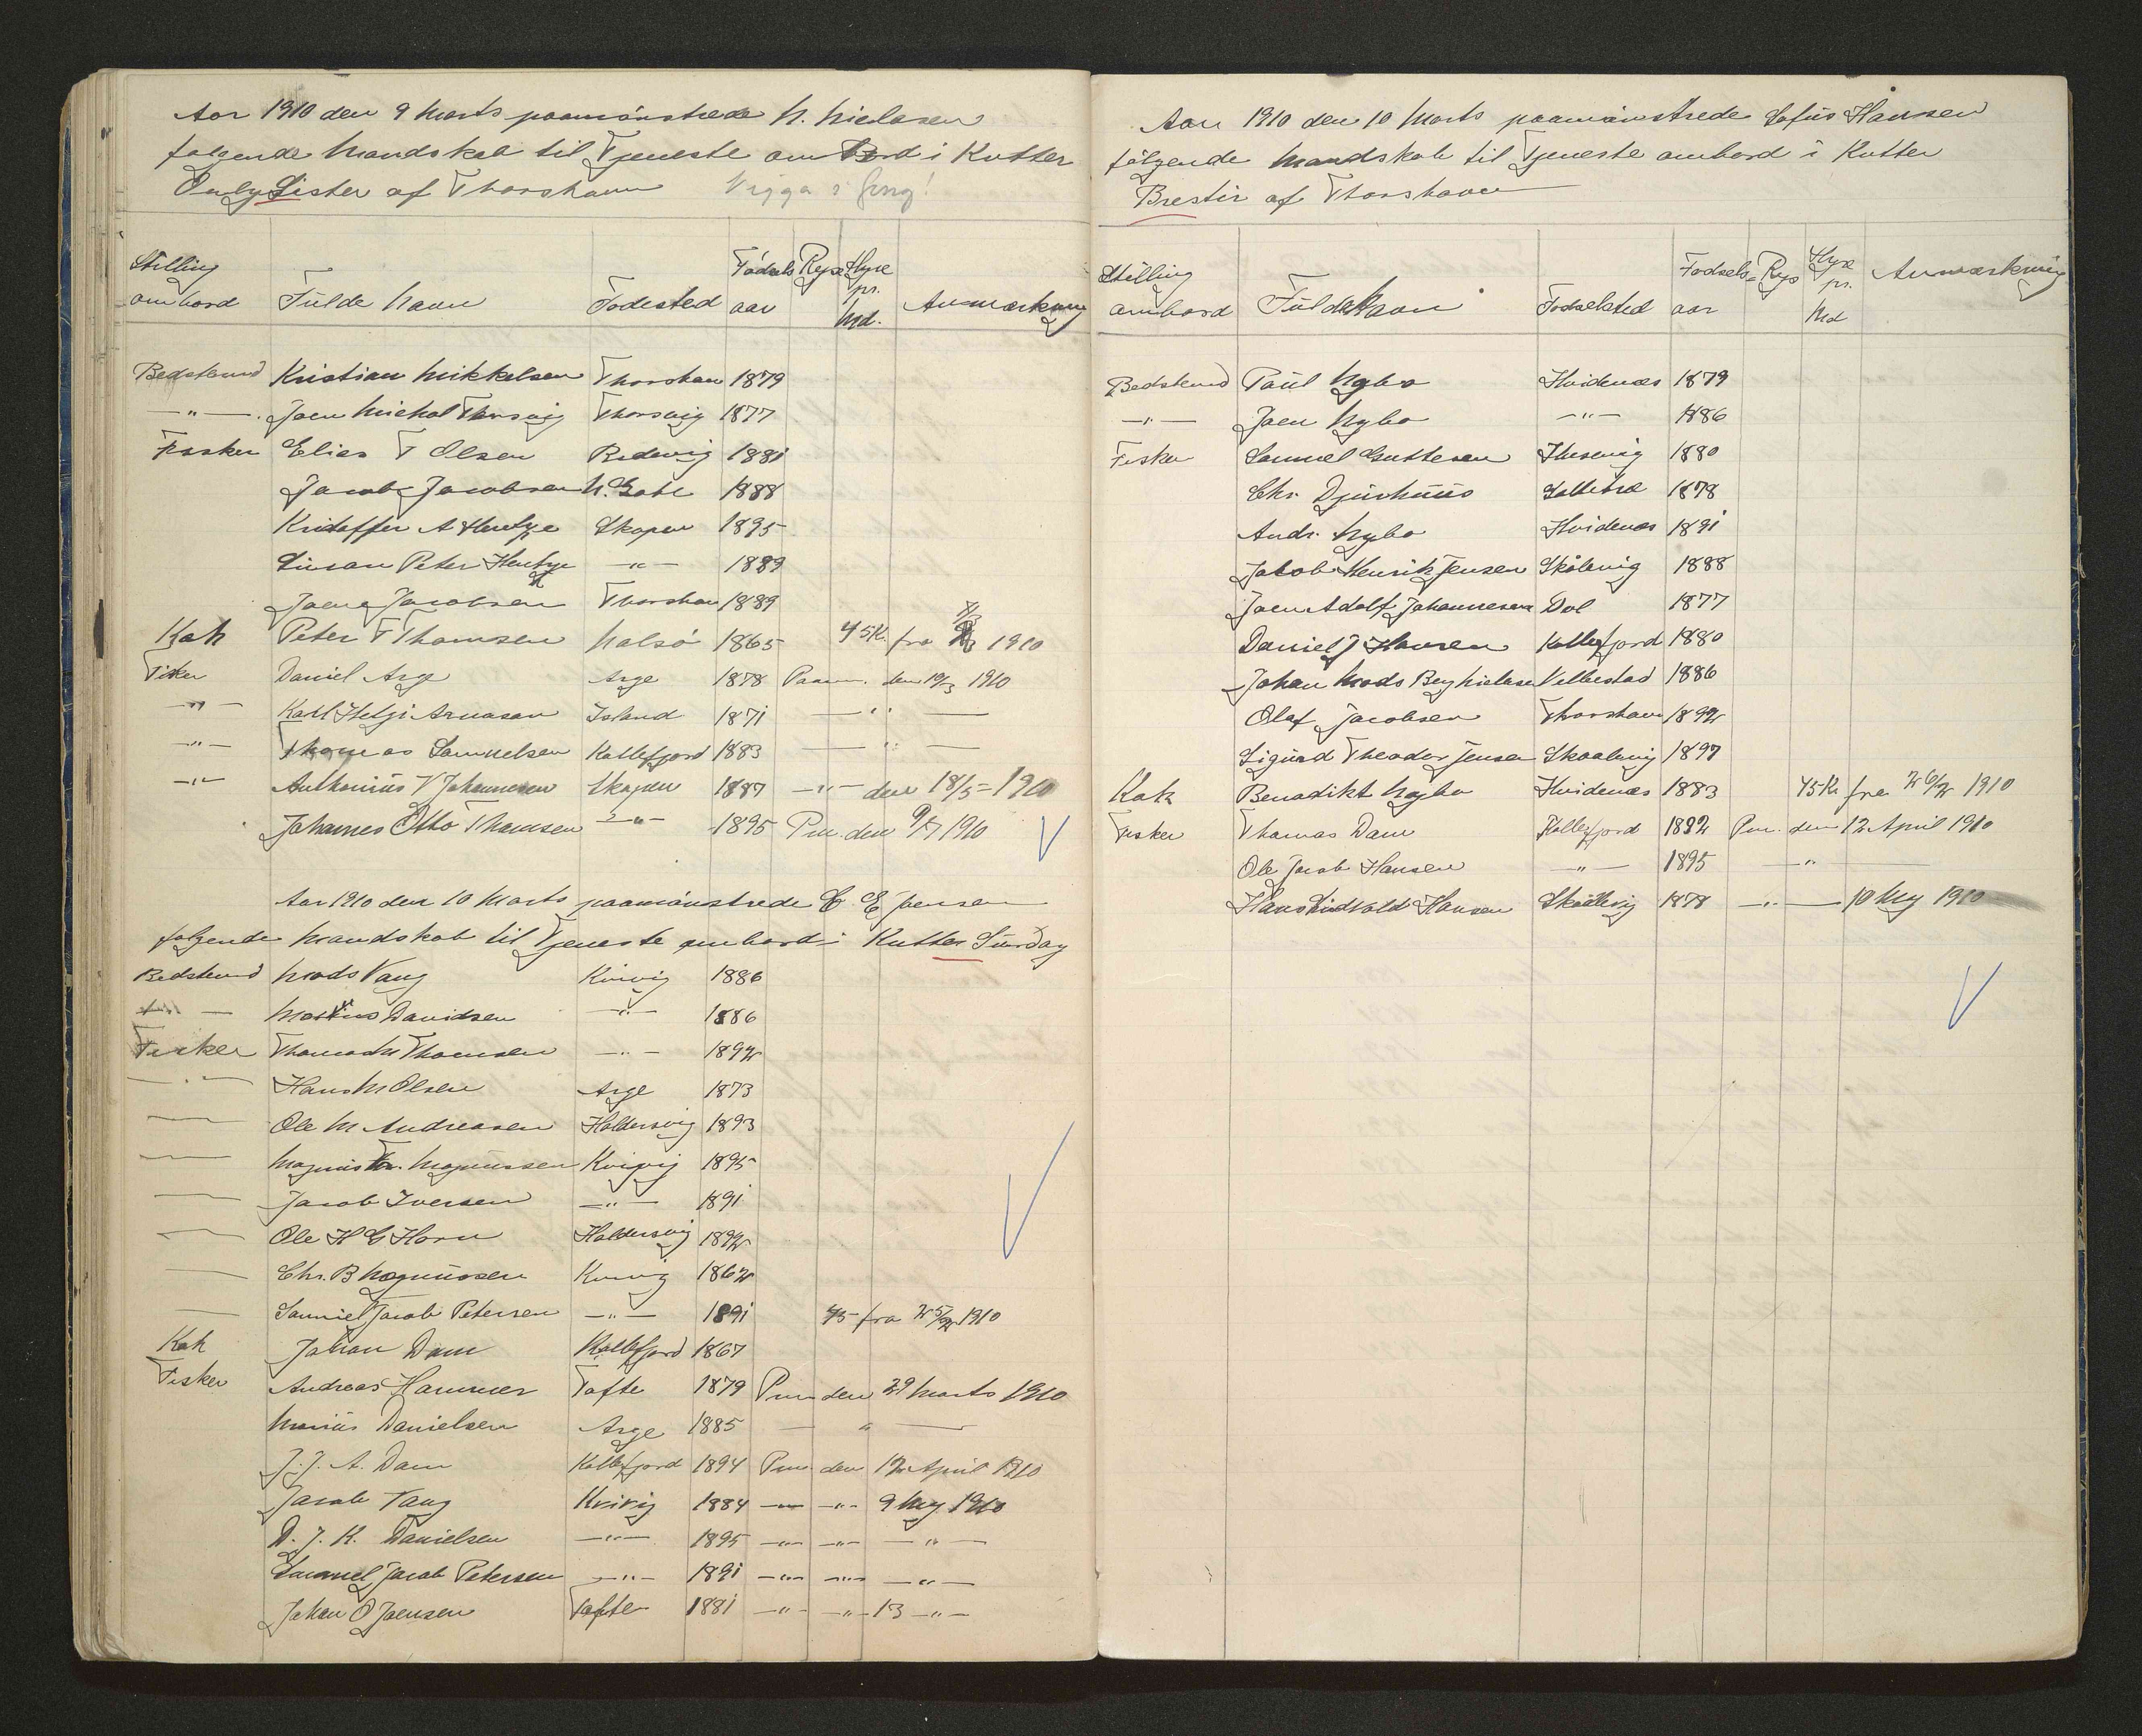 Aar 1910 den 9 Marts paamönstrede N. Nielsen
følgende Mandskab til Tjeneste om Bord i Kutter
Only Sister af Thorshavn Vigga i Gong!
Stilling ombord Fulde Navn Fødested Fødsels aar Rejse Hyre pr. Md. Anmærkning
Bedstemd Kristian Mikkelsen Thorshavn 1879
—"— Joen Michal Thorsvig Thorsvig 1877
Fisker Elias T Olsen Redevig 1881
Jacob Jacobsen N. Gøte 1888
Kristoffer A Hentze Skopen 1895
Simon Peter Hentze —"— 1889
Joen Jacobsen Thorshavn 1889
Kok Peter T Thomsen Nolsö 1865 45 Kr. fra 1910
Fisker Daniel Arge Arge 1878 Paam. den 19/3 1910
—"— Karl Helgi Arnason Island 1871 —"—
—"— Thomas Samuelsen Kollefjord 1883 —"—
—"— Anthonius V Johannesen Skopen 1887 —"— den 18/5 = 1910
Johannes Otto Thomsen —"— 1895 Pm. den 9/7 1910
Aar 1910 den 10 Marts paamönstrede C E Joensen
følgende Mandskab til Tjeneste ombord i Kutter Sunday
Bedstemd Mads Vang Kvivig 1886
—"— Martius Davidsen —"— 1886
Fisker Thomas M Thomsen —"— 1892
—"— Hans M Olsen Arge 1873
— Ole M Andreasen Haldersvig 1893
— Magnus Magnussen Kvivig 1895
— Jacob Iversen —"— 1891
— Ole H G Horn Haldersvig 1892
— Chr. B Magnussen Kvivig 1862
— Samuel Jacob Petersen —"— 1891 45 fra 25/2 1910
Kok Johan Dam Kollefjord 1867
Fisker Andreas Hammer Tofte 1879 Pm den 29 Marts 1910
Marius Danielsen Arge 1885 — " —
J. J. A. Dam Kollefjord 1894 Pm. den 12 April 1910
Jacob Vang Kvivig 1884 —"— —"— 9 Maj 1910
D. J. K. Danielsen —"— 1895 —"— —"— —"—
Samuel Jacob Petersen —"— 1891 —"— —"— —"—
Johan O Joensen Tofte 1881 —"— —"— 13 —"—
Aar 1910 den 10 Marts paamönstrede Sofus Hansen
følgende Mandskab til Tjeneste ombord i Kutter
Brestir af Thorshavn
Stilling ombord Fulde Navn Fødselssted Fødsels= aar Rejs Hyre pr. Md Anmærkning
Bedstemd Poul Nybo Hvidenæs 1879
—"— Joen Nybo —"— 1886
Fisker Samuel Guttesen Husevig 1880
Chr. Djurhuus 1878
Andr. Nybo Hvidenæs 1891
Jakob Henrik Jensen Skålevig 1888
Joen Adolf Johannesen Dal 1877
Daniel J Hansen Kollefjord 1880
Johan Mads Berg Nielsen Velbestad 1886
Olaf Jacobsen Thorshavn 1892
Sigurd Theodor Jensen Skaalevig 1897
Kok Benedikt Nybo Hvidenæs 1883 45 Kr fra 26/2 1910
Fisker Thomas Dam Kollefjord 1892 Pm. den 12 April 1910
Ole Jacob Hansen —"— 1895 —"—
Hans Hansen Skaalevig 1878 —"— 10 Maj 1910